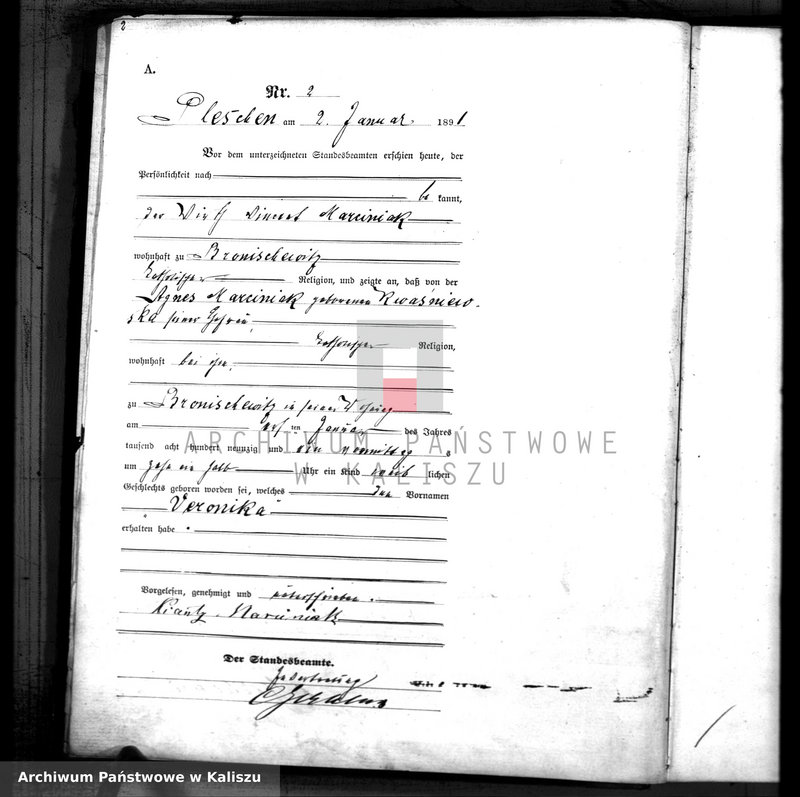 2
A.
Nr. 2
Pleschen am 2. Januar 1891
Vor dem unterzeichneten Standesbeamten erschien heute, der
Persönlichkeit nach
be kannt,
der Wirth Vincent Marciniak
wohnhaft zu Bronischewitz
katholischer Religion, und zeigte an, daß von der
Agnes Marciniak geborenen Kwaśniew-
ska seiner Ehefrau,
katholischer Religion,
wohnhaft bei ihm,
zu Bronischewitz in seiner Wohnung
am ersten Januar des Jahres
tausend acht hundert neunzig und ein Vormittags
um zehn ein halb Uhr ein Kind weib lichen
Geschlechts geboren worden sei, welches den Vornamen
"Veronika"
erhalten habe.
Vorgelesen, genehmigt und unterschrieben.
Marciniak
Der Standesbeamte.
In Vertretung
ARCHIWUM PAŃSTWOWE
W KALISZU
Archiwum Państwowe w Kaliszu